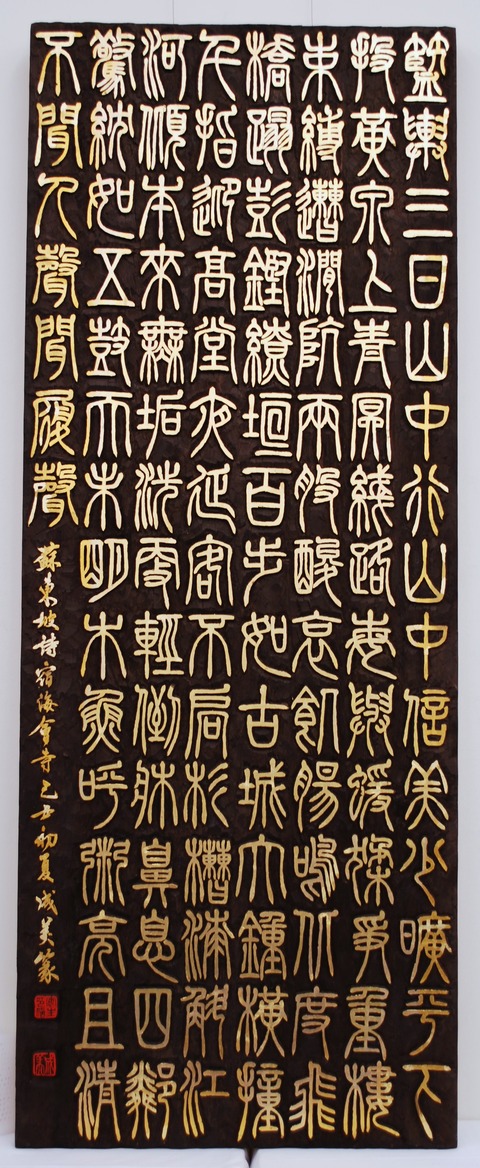 籃輿三日山中行山中信美少曠平下
投黃泉上青冥綫路每與猨猱爭重樓
束縛遭澗阬兩股酸哀飢腸鳴北度飛
橋蹋彭鏗繚垣百步如古城大鐘橫撞
千指迎高堂夜延客不扃杉槽漆斛江
河傾本來無垢洗更輕倒牀鼻息四鄰
驚紞如五鼓天未明木魚呼粥亮且清
不聞人聲聞履聲
蘇東坡詩宿海會寺己丑初夏成美篆